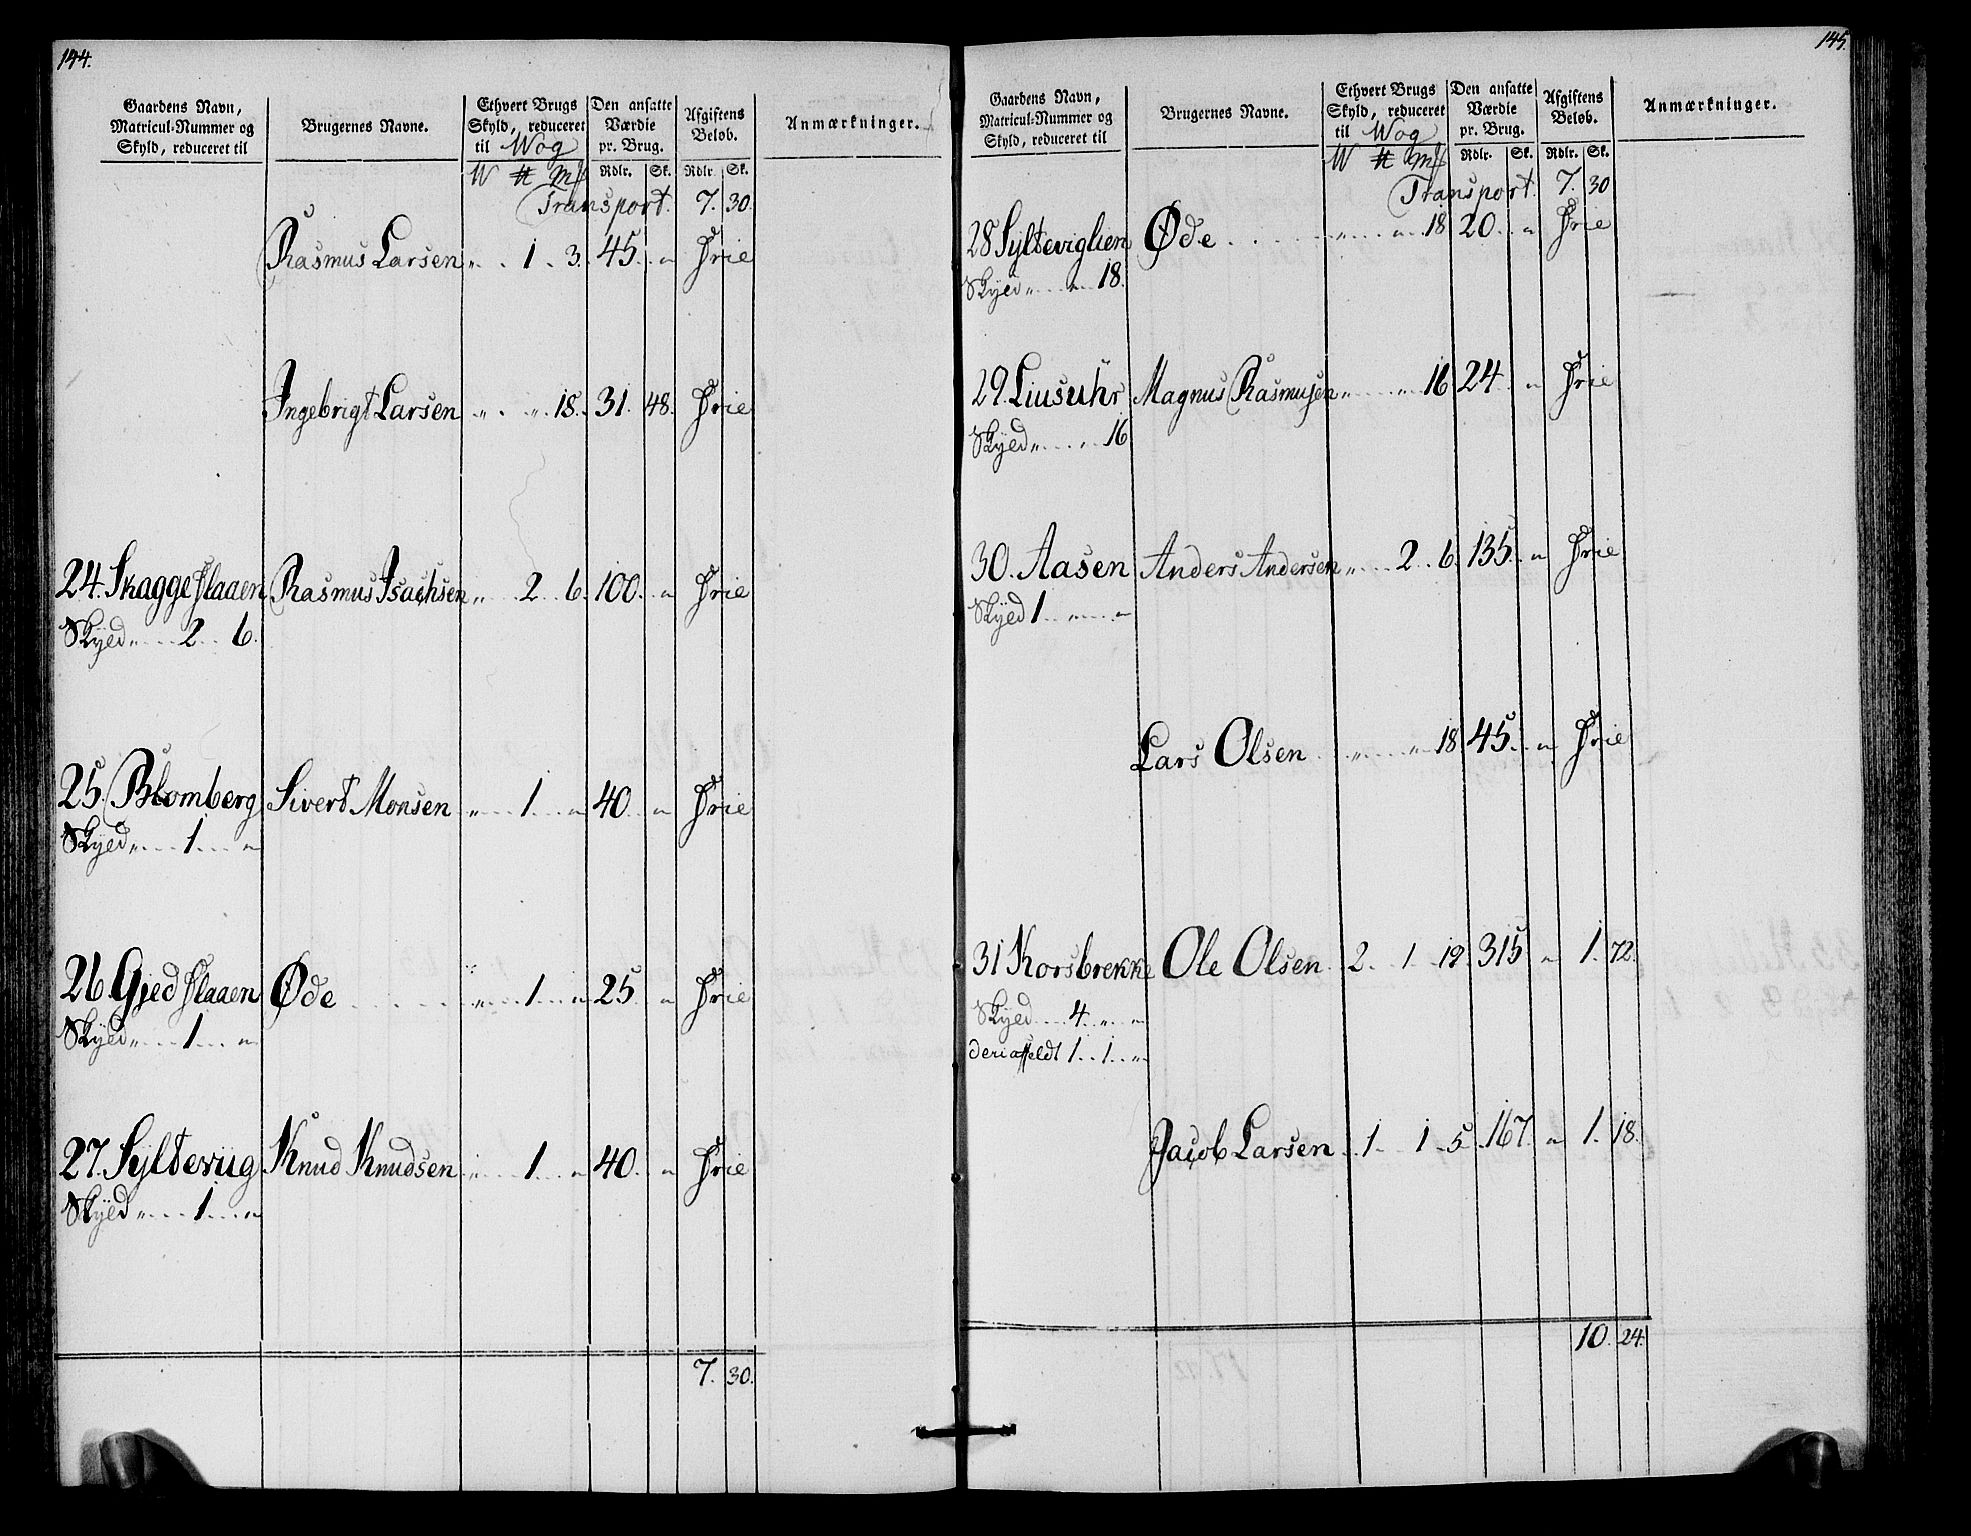 144.
Gaardens Navn, Matricul-Nummer og Skyld, reduceret til
Brugernes Navne.
Ethvert Brugs Skyld, reduceret til Wog
Den ansatte Værdie pr. Brug.
Afgiftens Beløb.
Anmærkninger.
W ℔ Mk Rdlr. Sk. Rdlr. Sk.
Transport. 7. 30.
Rasmus Larsen „ . . 1 . 3. 45. „ Frie
Ingebrigt Larsen „ . . „ . 18. 31. 48. Frie
24. Skaggeflaaen Rasmus Isachsen „ . . 2 . . 6. 100. „ Frie
Skyed „ . . . . 2 . . 6.
25. Blomberg Sivert Monsen „ . . . 1 . . . „ 40. „ Frie
Skyed „ . . . . 1 . . . „
26. Gjedflaaen Øde . . . . . „ . . . 1 . . . „ 25. „ Frie
Skyed „ . . . . 1 . . . „
27. Syltevüg Knud Knudsen „ . . . 1 . . . „ 40. „ Frie
Skyed „ . . . . 1 . . . „
7. 30.
145.
Gaardens Navn, Matricul-Nummer og Skyld, reduceret til
Brugernes Navne.
Ethvert Brugs Skyld, reduceret til Wog
Den ansatte Værdie pr. Brug.
Afgiftens Beløb.
Anmærkninger.
W ℔ Mk Rdlr. Sk. Rdlr. Sk.
Transport. 7. 30
28 Sylteviglien Øde . . . . . „ . . . „ . . 18 20. . „ Frie
Skyed „ . . . . „ . . 18.
29. Liusuhr Magnus Rasmusen „ . . . . „ 16 24. „ Frie
Skyed „ . . . . „ . . 16
30. Aasen Anders Andersen „ . . . . 2 . . 6. 135. . „ Frie
Skyed 1 . . „ . . . „
Lars Olsen . . „ . . . . „ 18 45. . „ Frie
31 Korsbrekke Ole Olsen . 2. . 1 . 19. 315 „ 1. 72.
Skyed . . . 4. . „ . . „
deriaffeldt 1 . . 1 . . „
Jacob Larsen . 1 . . 1 . 5. 167. „ 1. 18.
10. 24.